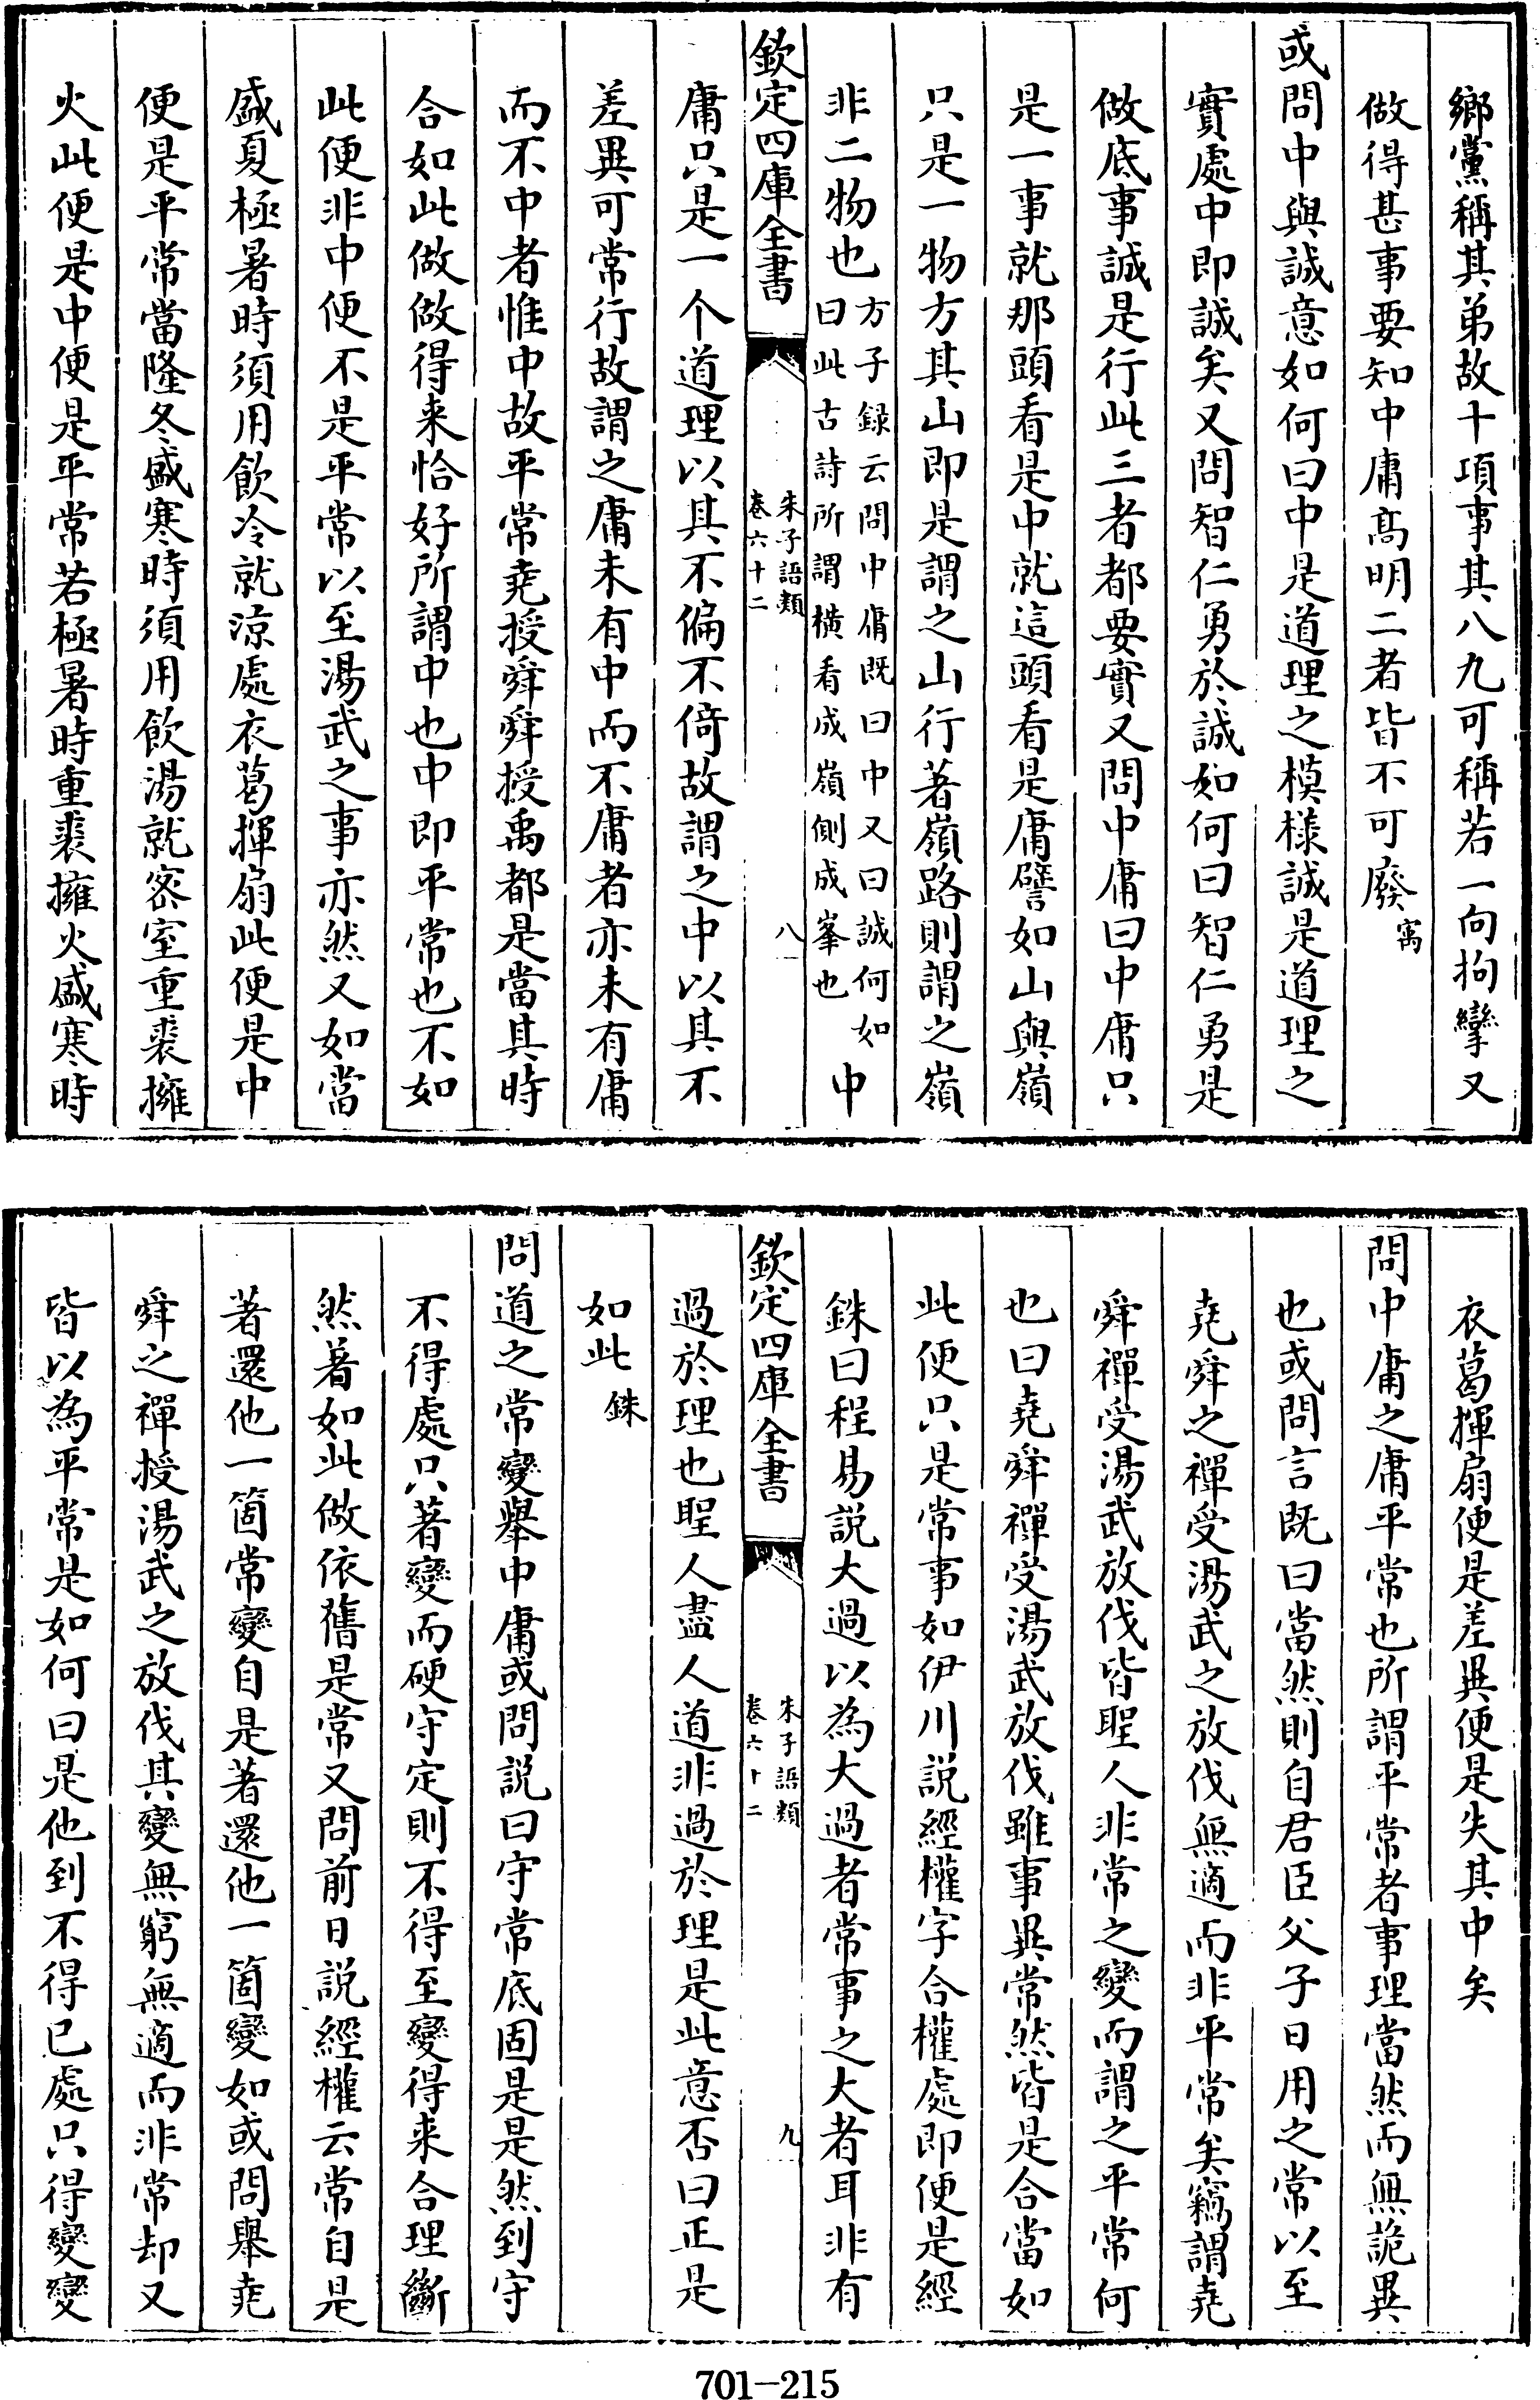 鄉黨稱其弟故十項事其八九可稱若一向拘攣又
做得甚事要知中庸高明二者皆不可廢寓
或問中與誠意如何曰中是道理之模様誠是道理之
實處中即誠矣又問智仁勇於誠如何曰智仁勇是
做底事誠是行此三者都要實又問中庸曰中庸只
是一事就那頭看是中就這頭看是庸譬如山與嶺
只是一物方其山即是謂之山行著嶺路則謂之嶺
非二物也方子録云問中庸既曰中又曰誠何如
曰此古詩所謂横看成嶺側成峯也中
欽定四庫全書
朱子語類
卷六十二
八
庸只是一个道理以其不偏不倚故謂之中以其不
差異可常行故謂之庸未有中而不庸者亦未有庸
而不中者惟中故平常堯授舜舜授禹都是當其時
合如此做做得来恰好所謂中也中即平常也不如
此便非中便不是平常以至湯武之事亦然又如當
盛夏極暑時須用飲冷就涼處衣葛揮扇此便是中
便是平常當隆冬盛寒時須用飲湯就宻室重裘擁
火此便是中便是平常若極暑時重裘擁火盛寒時
衣葛揮扇便是差異便是失其中矣
問中庸之庸平常也所謂平常者事理當然而無詭異
也或問言既曰當然則自君臣父子日用之常以至
堯舜之禪受湯武之放伐無適而非平常矣竊謂堯
舜禪受湯武放伐皆聖人非常之變而謂之平常何
也曰堯舜禪受湯武放伐雖事異常然皆是合當如
此便只是常事如伊川説經權字合權處即便是經
銖曰程易説大過以為大過者常事之大者耳非有
欽定四庫全書
朱子語類
卷六十二
九
過於理也聖人盡人道非過於理是此意否曰正是
如此銖
問道之常變舉中庸或問説曰守常底固是是然到守
不得處只著變而硬守定則不得至變得来合理斷
然著如此做依舊是常又問前日説經權云常自是
著還他一箇常變自是著還他一箇變如或問舉堯
舜之禪授湯武之放伐其變無窮無適而非常却又
皆以為平常是如何曰是他到不得已處只得變變
701-215